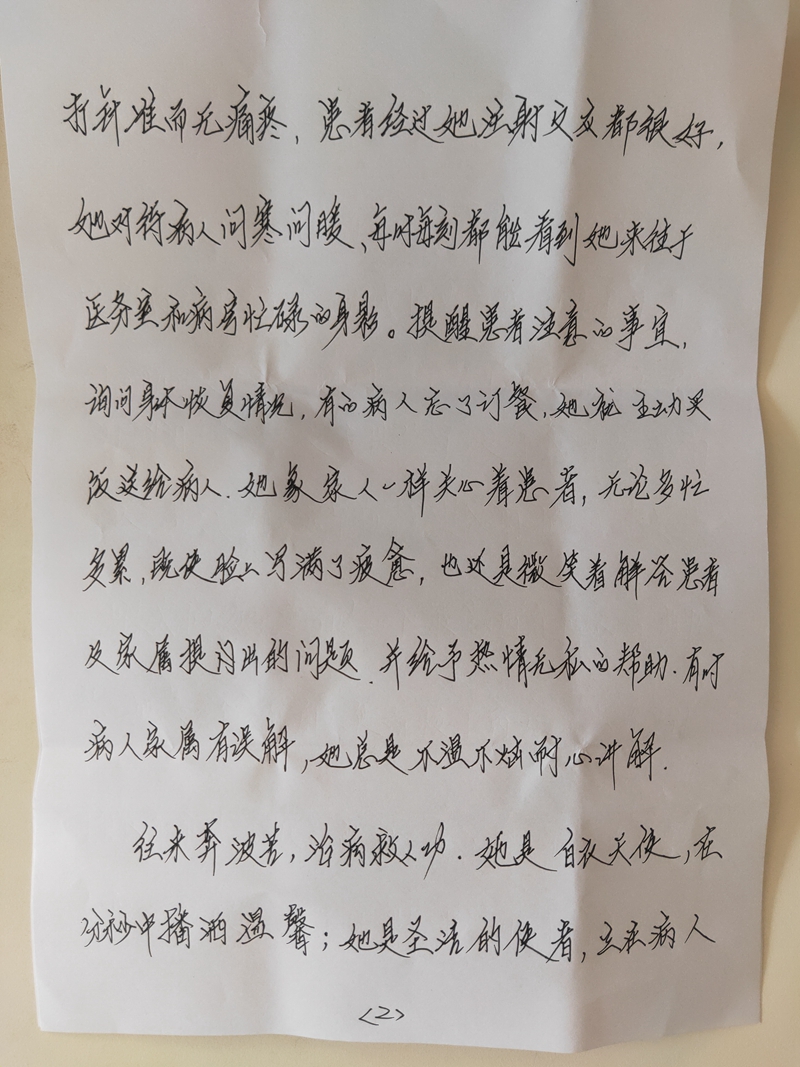 打针准而无痛疼，患者经过她注射反应都很好，
她对待病人问寒问暖、每时每刻都能看到她来往于
医务室和病房忙碌的身影。提醒患者注意的事宜，
询问身体恢复情况，有的病人忘了订餐，她就主动买
饭送给病人．她象家人一样关心着患者，无论多忙
多累，既使脸上写满了疲惫，也还是微笑着解答患者
及家属提问出的问题．并给予热情无私的帮助．有时
病人家属有误解，她总是不温不恼耐心讲解．
往来奔波苦，治病救人功．她是白衣天使，在
分秒中播洒温馨；她是圣洁的使者，立在病人
<2>